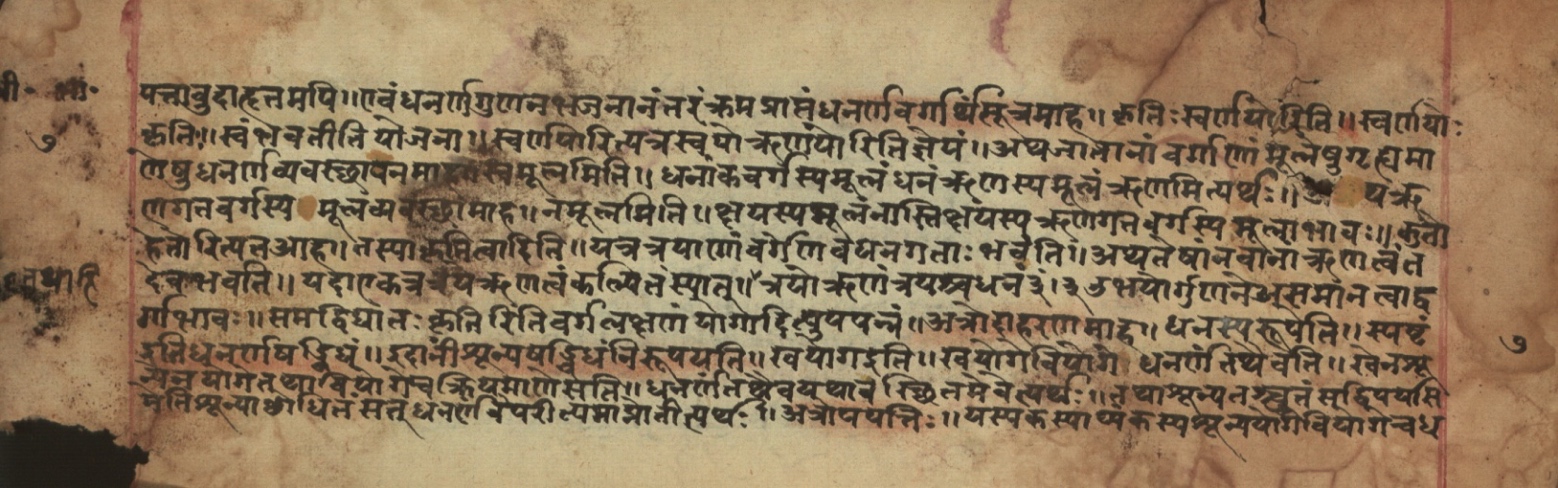 यत्तावुदाहृतमपि ॥ एवं धनर्णगुणनभजनानंतरं क्रमप्राप्तं धनर्णवर्गार्थं सूत्रमाह ॥ कृतिः स्वर्णयोरिति ॥ स्वर्णयोः
कृतिः स्वं भवतीति योजना ॥ स्वर्णयोरित्यत्र स्वयोः ऋणयोरिति ज्ञेयं ॥ अथ ज्ञातानां वर्गाणां मूलेषु गृह्यमा
णेषु धनर्णव्यवस्था मूलमिति ॥ धनात्मकवर्गस्य मूलं धनं ऋणस्य मूलं ऋणमित्यर्थः ॥ ऋ
णगतवर्गस्य मूलं व्यवस्थामाह ॥ न मूलमिति ॥ क्षयस्य मूलं नास्ति क्षयस्य ऋणगतवर्गस्य मूलाभावः ॥ कुतो
हेतोरित्यत आह ॥ तस्याकृतित्वादिति ॥ यत्र त्रयाणां वर्गो णव धनगताः भवंति ॥ अथ तेषां नवानां ऋणत्वं त
देव भवति ॥ यदा एकत्र त्रय ऋणत्वं कल्पितं स्यात् ॥ त्रयो ऋणं त्रयश्च धनं ३ं । ३ उभयोर्गुणने असमानत्वाद्व
र्गाभावः ॥ समद्विघातः कृतिरिति वर्गलक्षणं योगादित्युपपन्नं ॥ अत्रोदाहरणमाह ॥ धनस्य रूपेति ॥ स्पष्टं
इति धनर्णषड्विधं ॥ इदानीं शून्यषड्विधं निरूपयति ॥ खयोग इति ॥ खयोगे वियोगे धनर्णं तथैवेति ॥ खेन शू
न्येन योगे तथा वियोगे च क्रियमाणे सति ॥ धनर्णं तथैव यथावस्थितमेवेत्यर्थः ॥ तथा शून्यतश्च्युतं सद्विपर्यासे
मेति शून्याच्छोधितं सत् धनर्णं वैपरीत्यमाप्नोतीत्यर्थः ॥ अत्रोपपत्तिः ॥ यस्य कस्याप्यंकस्य शून्ययोगे वियोगे च ध
७
७